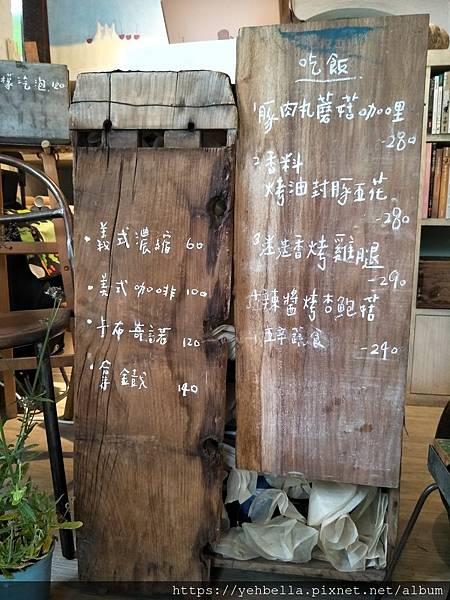 檬汽泡120
・義式濃縮 60
・美式咖啡 100
・卡布奇諾 120
・拿鐵 140
吃飯
1.豚肉丸蘑菇咖哩
-280
2.香料
烤油封豚五花
-280
3.迷迭香烤雞腿
-290
辣醬烤杏鮑菇
五辛蔬食 -240
https://yehbella.pixnet.net/album